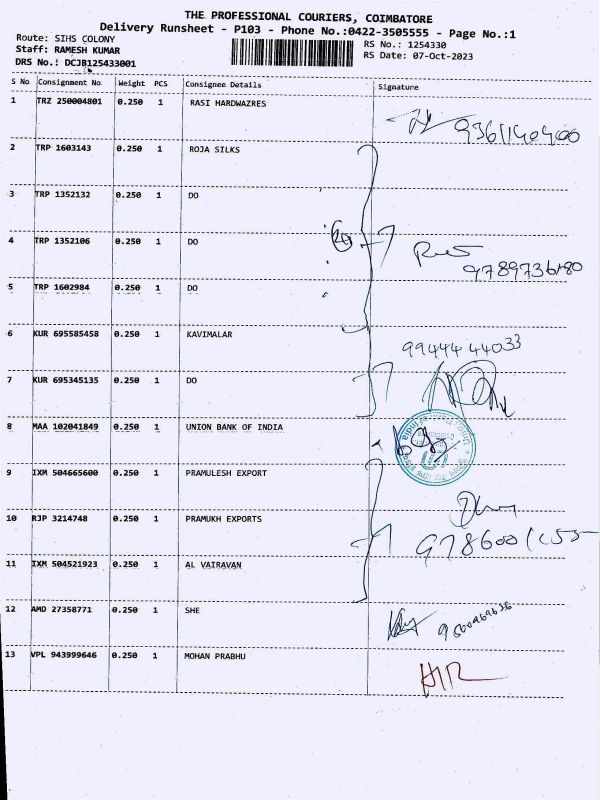 THE PROFESSIONAL COURIERS, COIMBATORE
Delivery Runsheet - P103 - Phone No.:0422-3505555 - Page No.:1
Route: SIHS COLONY
Staff: RAMESH KUMAR
DRS No.: DCJB125433001
RS No.: 1254330
RS Date: 07-Oct-2023
S No Consignment No Weight PCS Consignee Details Signature
1 TRZ 250004801 0.250 1 RASI HARDWAZRES
9361140400
2 TRP 1603143 0.250 1 ROJA SILKS
3 TRP 1352132 0.250 1 DO
4 TRP 1352106 0.250 1 DO
9789736180
5 TRP 1602984 0.250 1 DO
6 KUR 695585458 0.250 1 KAVIMALAR
99444 44033
7 KUR 695345135 0.250 1 DO
8 MAA 102041849 0.250 1 UNION BANK OF INDIA
9 IXM 504665600 0.250 1 PRAMULESH EXPORT
10 RJP 3214748 0.250 1 PRAMUKH EXPORTS
11 IXM 504521923 0.250 1 AL VAIRAVAN
12 AMD 27358771 0.250 1 SHE
13 VPL 943999646 0.250 1 MOHAN PRABHU